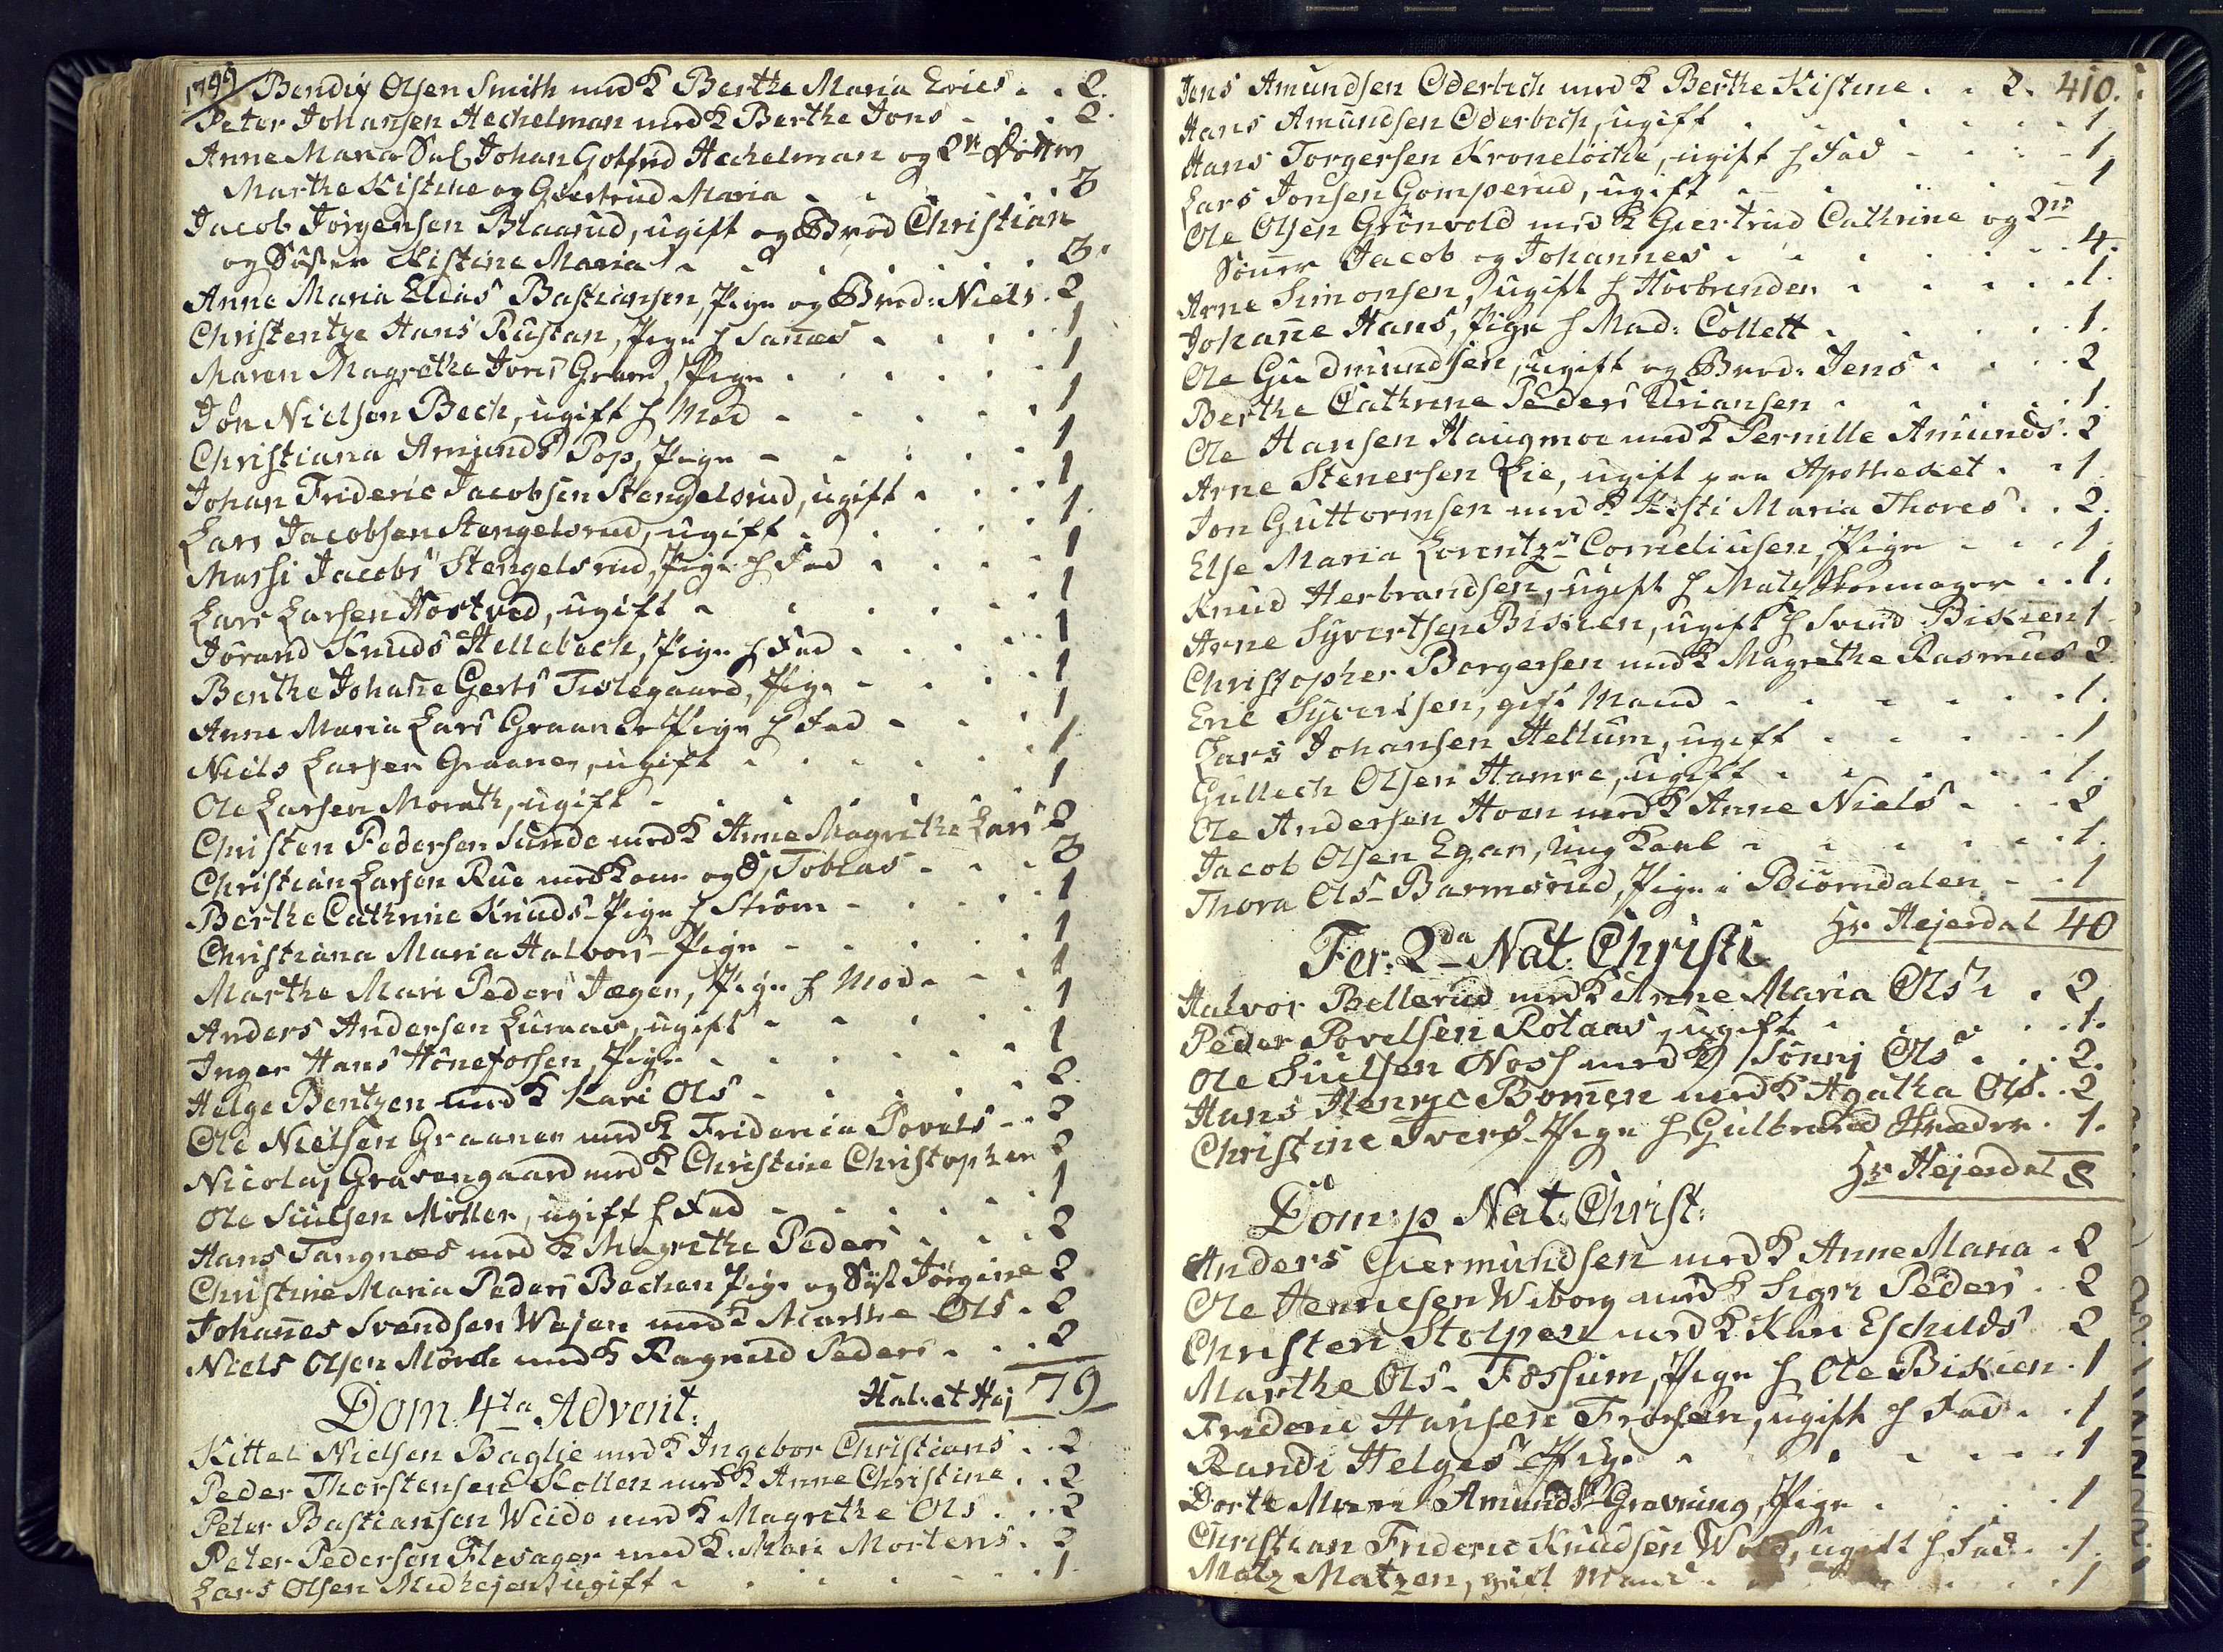 1799 Bendix Olsen Smith med K Berthe Maria Erics . . 2.
Peter Johansen Hechelman med K Berthe Jons . . 2.
Anne Maria Sal Johan Gotfrid Hechelman og 2de Døttre
Marthe Kistine og Giertrud Maria . . 3
Jacob Jørgensen Blaarud, ugift og Brod Christian
og Søster Kistine Maria . . 3.
Anne Maria Elias Bastiansen, Pige og Brod: Niels . 2
Christentze Hans Rustan, Pige h Sannes . . 1
Maren Magrethe Jons Graen, Pige . . 1
Jon Nielsen Bech, ugift h Mod . . 1
Christiana Amunds Pop, Pige . . 1
Johan Frideric Jacobsen Stengelsrud, ugift . . 1
Lars Jacobsen Stengelsrud, ugift . . 1.
Massi Jacobs Stengelsrud, Pige h Fad . . 1
Lars Larsen Hostved, ugift . . 1
Jørand Knuds Hellebech, Pige h Fad . . 1
Berthe Johanne Gerts Tislegaard, Pige . . 1
Anne Maria Lars Graaner Pige h Fad . . 1
Niels Larsen Graaner, ugift . . 1
Ole Larsen Morath, ugift . . 1
Christen Pedersen Sunde med K Anne Magrethe Lars 2
Christian Larsen Rue med Kone og S, Tobias . . 3
Berthe Cathrine Knuds - Pige h Strøm . . 1
Christiana Maria Halvors - Pige . . 1
Marthe Mari Peders Jæger, Pige h Mod . . 1
Anders Andersen Luraas, ugift . . 1
Inger Hans Hønefossen, Pige . . 1
Helge Bentzen med K Kari Ols . . 2.
Ole Nielsen Graaner med K Fridericia Povels . . 2
Nicolaj Gravengaard med K Christine Christopher 2
Ole Siulsen Møller, ugift h Fad . . 1
Hans Tangnæs med K Magrethe Peders . . 2
Christine Maria Peders Bechen Pige og Syst Jørgine 2
Johannes Svendsen Wejen med K Marthe Ols . 2
Niels Olsen Mørch med K Ragnild Peders . . 2
Dom: 4ta Advent: Hal: et Hej 79
Kittel Nielsen Baglie med K Ingebor Christians . . 2
Peder Thorstensen Kolten med K Anne Christine . . 2
Peter Bastiansen Weido med K Magrethe Ols . . 2
Peter Pedersen Flesager med K Mari Mortens . 2
Lars Olsen Medhejen, ugift . . 1
410.
Jens Amundsen Oderbech med K Berthe Kistine . . 2.
Hans Amundsen Oderbech, ugift . . 1
Hans Torgersen Kroneløche, ugift h Fad . . 1
Lars Jonsen Gomperud, ugift . . 1
Ole Olsen Grønvold med K Giertrud Cathrine og 2de
Sønner Jacob og Johannes . . 4.
Arne Simonsen, ugift h Horbrender . . 1.
Johanne Hans, Pige h Mad: Collett . . 1.
Ole Gudmundsen, ugift og Brod: Jens . . 2
Berthe Cathrine Peders Uriansen . . 1.
Ole Hansen Haugmoe med K Pernille Amunds . 2
Arne Stenersen Lie, ugift paa Apotheket . . 1
Jon Guttormsen med K Kisti Maria Thores . . 2.
Else Maria Lorentzs Corneliusen, Pige . . 1.
Knud Herbrandsen, ugift h Matz Skomager . . 1.
Arne Syvertsen Biskien, ugift h Svend Biskien 1
Christopher Borgersen med K Magrethe Rasmus 2
Eric Syversen, gift Mand . . 1.
Lars Johansen Hellum, ugift . . 1
Gullech Olsen Hamre, ugift . . 1.
Ole Andersen Hoen med K Anne Niels . . 2
Jacob Olsen Egar, Ung Karl . . 1.
Thora Ols - Barmsrud, Pige i Biørndalen . . 1
Hr Hejerdal 40
Fer: 2da Nat: Christi
Halvor Bellerud med K Anne Maria Ols . . 2
Peder Povelsen Rotaas, ugift . . 1.
Ole Siulsen Noss med K Sønnj Ols . . 2.
Hans Henric Bomen med K Agatha Ols . . 2
Christine Ivers - Pige h Gulbrand Skræder . 1.
Hr Hejerdal 8
Dom: p Nat: Christ:
Anders Giermundsen med K Anne Maria . 2
Ole Henricsen Wiborg med K Sigri Peders . . 2
Christen Stolpen med K Kari Eschilds 2
Marthe Ols - Fossum, Pige h Ole Biskien . 1
Frideric Hansen Frorsen, ugift h Fad . . 1
Randi Helges - Pige . . 1
Dorthe Maria Amunds Gravning, Pige . . 1
Christian Frideric Knudsen Wold, ugift h Fad . . 1.
Matz Matzen, gift Mand . . 1